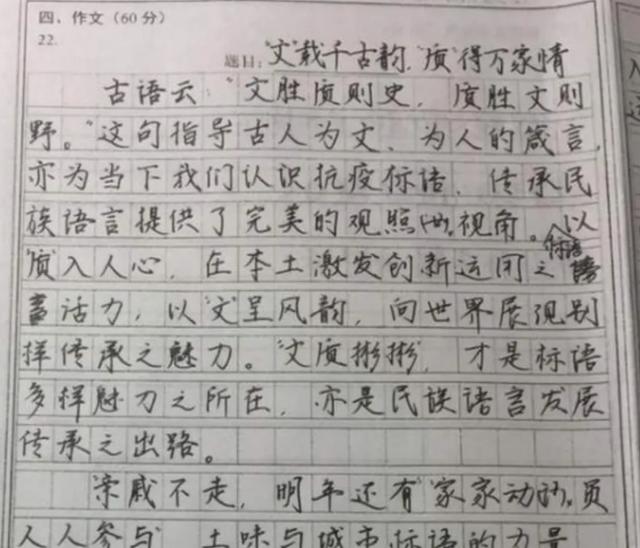 四、作文(60分)
22.
题目:"文"载千古韵,"质"得万家情
古语云:"文胜质则史,质胜文则
野。"这句指导古人为文、为人的箴言,
亦为当下我们认识抗疫标语、传承民
族语言提供了完美的观照视角。以
"质"入人心,在本土激发创新运用之标语
活力,以"文"呈风韵,向世界展现别
样传承之魅力。"文质彬彬",才是标语
多样魅力之所在,亦是民族语言发展
传承之出路。
"亲戚不走,明年还有"家家动员,
人人参与",土味与城市标语的力量